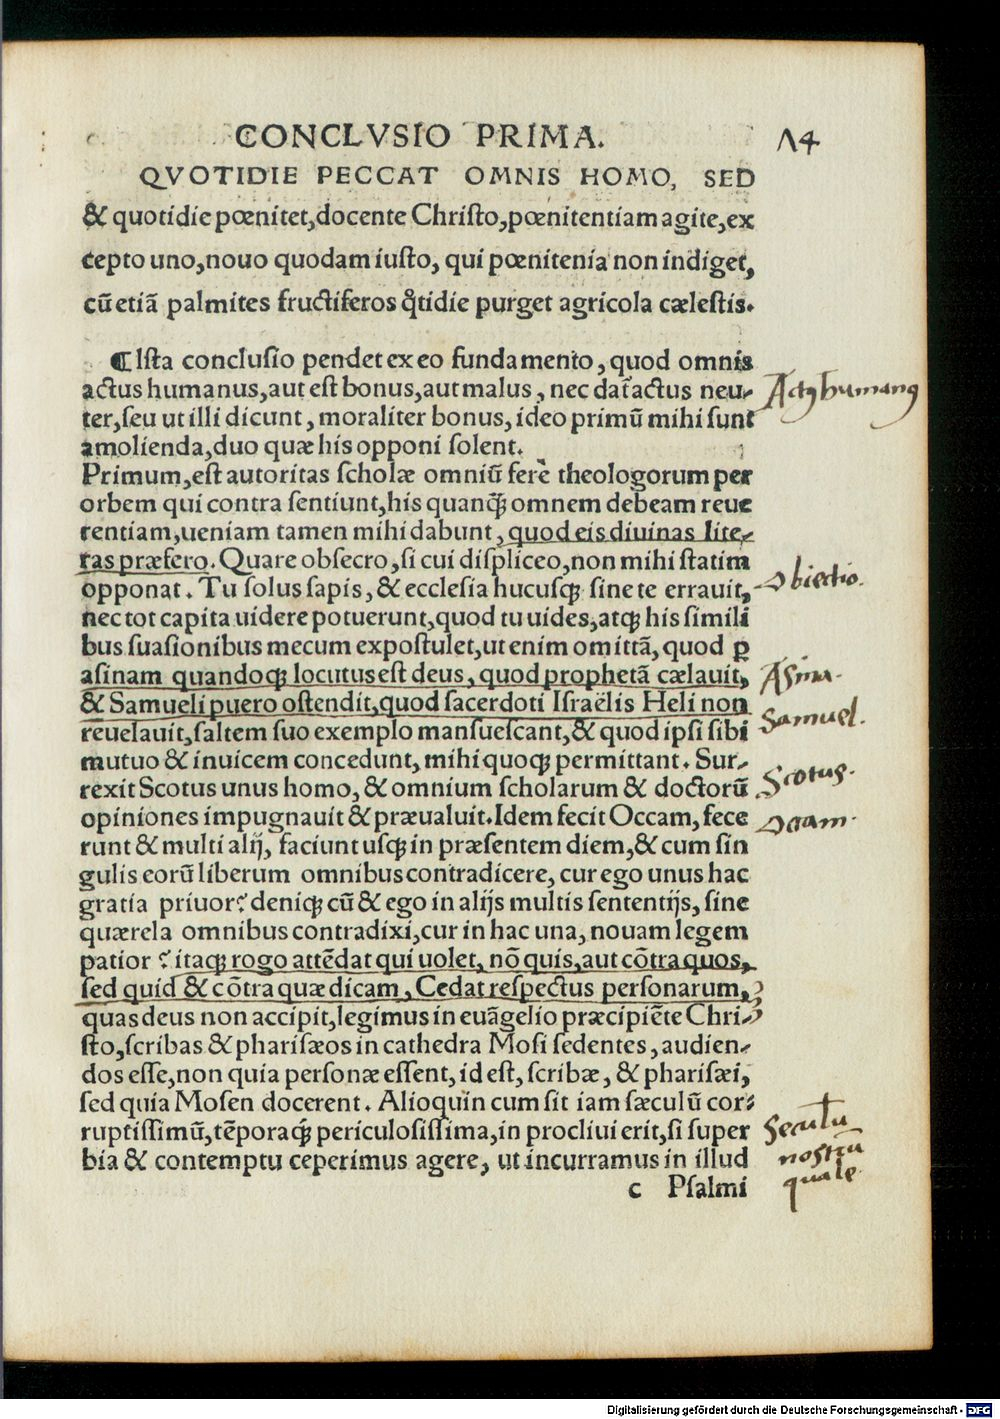 CONCLVSIO PRIMA.
14
QVOTIDIE PECCAT OMNIS HOMO, SED
& quotidie pœnitet, docente Chriſto, pœnitentiam agite, ex
cepto uno, nouo quodam iuſto, qui pœnitenia non indiget,
cū etiā palmites fructiferos q̃tidie purget agricola cæleſtis.
¶ Iſta concluſio pendet ex eo fundamento, quod omnis
actus humanus, aut eſt bonus, aut malus, nec dat̃ actus neu-
ter, ſeu ut illi dicunt, moraliter bonus, ideo primū mihi ſunt
amolienda, duo quæ his opponi ſolent.
Primum, eſt autoritas ſcholæ omniū ferè theologorum per
orbem qui contra ſentiunt, his quanq̃ omnem debeam reue
rentiam, ueniam tamen mihi dabunt, quod eis diuinas lite-
ras præfero. Quare obſecro, ſi cui diſpliceo, non mihi ſtatim
opponat. Tu ſolus ſapis, & eccleſia hucuſq; ſine te errauit,
nec tot capita uidere potuerunt, quod tu uides, atq; his ſimili
bus ſuaſionibus mecum expoſtulet, ut enim omittā, quod ꝑ
aſinam quandoq; locutus eſt deus, quod prophetā cælauit,
& Samueli puero oſtendit, quod ſacerdoti Iſraëlis Heli non
reuelauit, ſaltem ſuo exemplo manſueſcant, & quod ipſi ſibi
mutuo & inuicem concedunt, mihi quoq; permittant. Sur-
rexit Scotus unus homo, & omnium ſcholarum & doctorū
opiniones impugnauit & præualuit. Idem fecit Occam, fece
runt & multi alij, faciunt uſq; in præſentem diem, & cum ſin
gulis eorū liberum omnibus contradicere, cur ego unus hac
gratia priuor? deniq; cū & ego in alijs multis ſententijs, ſine
quærela omnibus contradixi, cur in hac una, nouam legem
patior? itaq; rogo attēdat qui uolet, nō quis, aut cōtra quos,
ſed quid & cōtra quæ dicam, Cedat reſpectus perſonarum,
quas deus non accipit, legimus in euāgelio præcipiēte Chri-
ſto, ſcribas & phariſæos in cathedra Moſi ſedentes, audien-
dos eſſe, non quia perſonæ eſſent, id eſt, ſcribæ, & phariſæi,
ſed quia Moſen docerent. Alioquin cum ſit iam ſæculū cor-
ruptiſſimū, tēporaq; periculoſiſſima, in procliui erit, ſi ſuper
bia & contemptu ceperimus agere, ut incurramus in illud
c Pſalmi
Actꝰ humanꝰ
Obiectio.
Asina.
Samuel.
Scotus.
Ocam.
Seculū
nostrū
quale
Digitalisierung gefördert durch die Deutsche Forschungsgemeinschaft - DFG